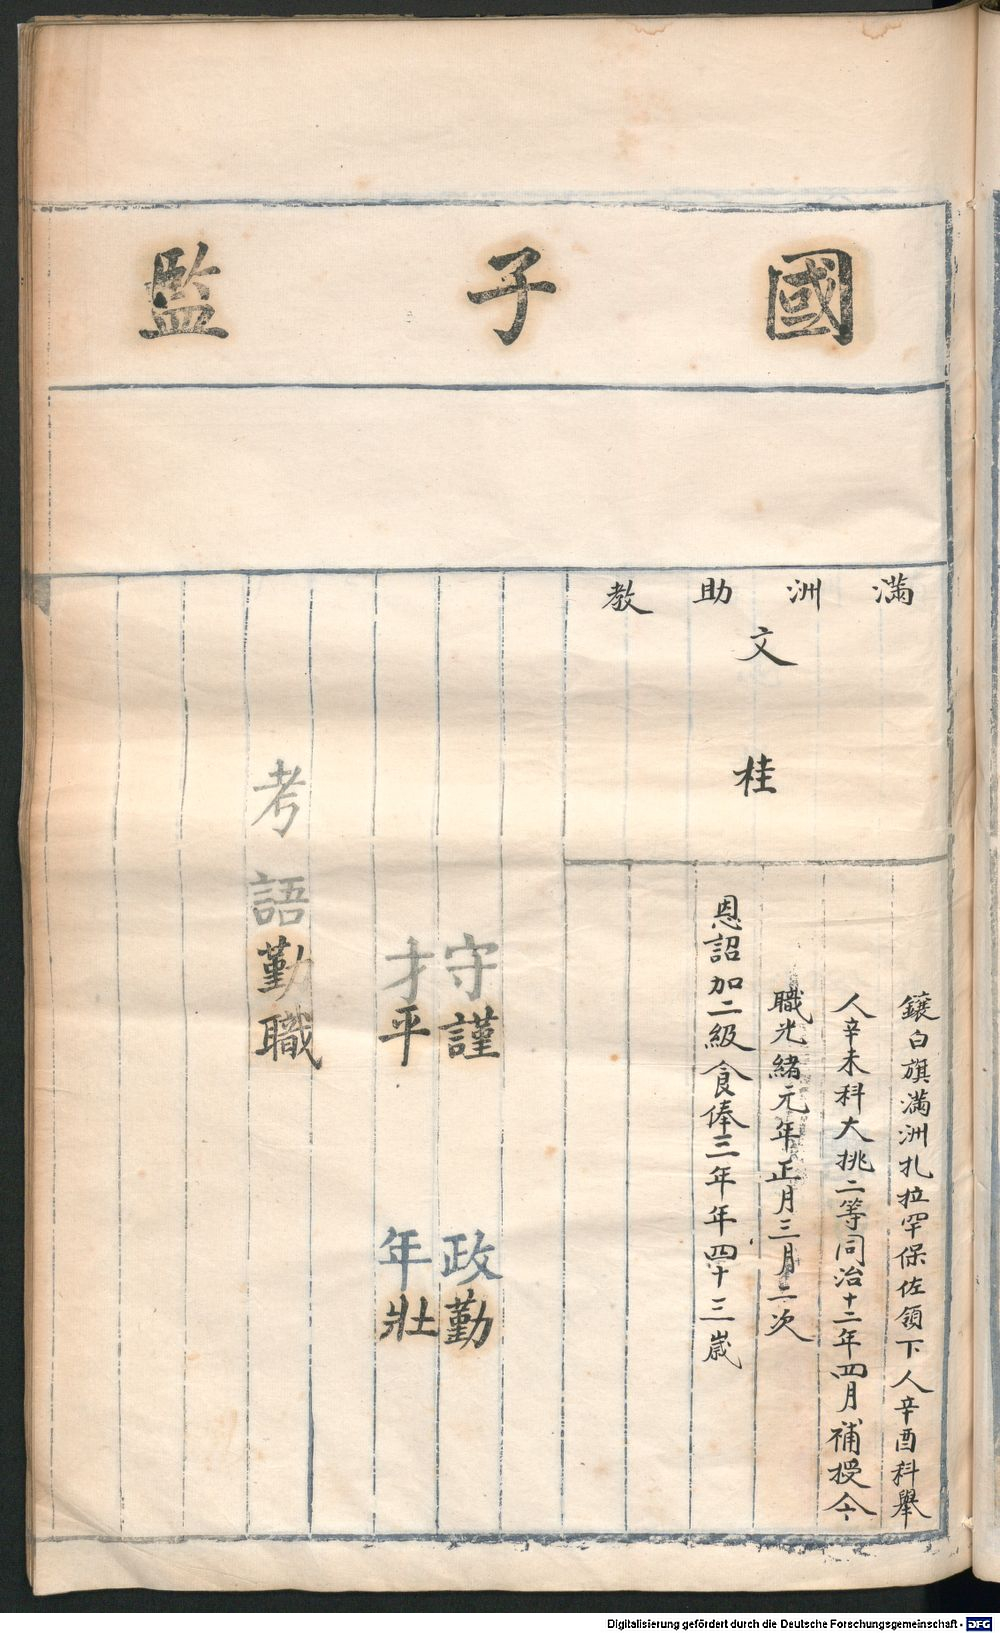 國子監
滿洲助教
文桂
鑲白旗滿洲扎拉罕保佐領下人辛酉科舉
人辛未科大挑二等同治十二年四月補授今
職光緒元年正月三月二次
恩詔加二級食俸三年年四十三歲
守謹 政勤
才平 年壯
考語勤職
Digitalisierung gefördert durch die Deutsche Forschungsgemeinschaft - DFG